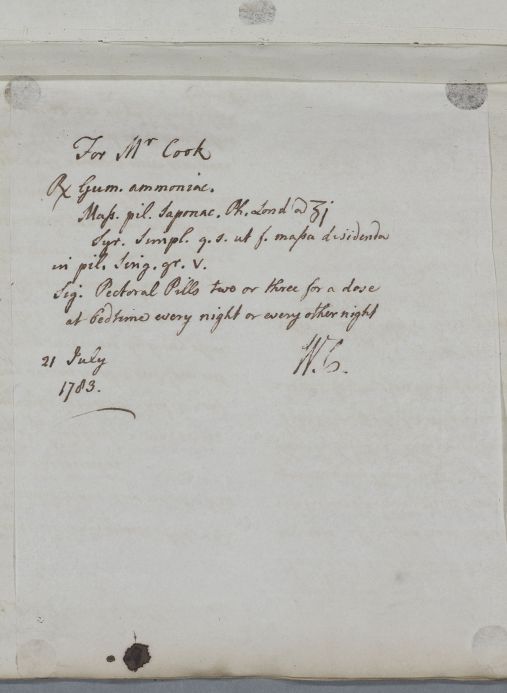 For Mr Cook
℞ Gum. ammoniac.
Mass. pil. Saponac. Ph. Lond. a ʒj
Syr. Simpl. q. s. ut f. massa dividenda
in pil. sing. gr. V.
Sig. Pectoral Pills two or three for a dose
at bedtime every night or every other night
21 July
W.C.
1783.